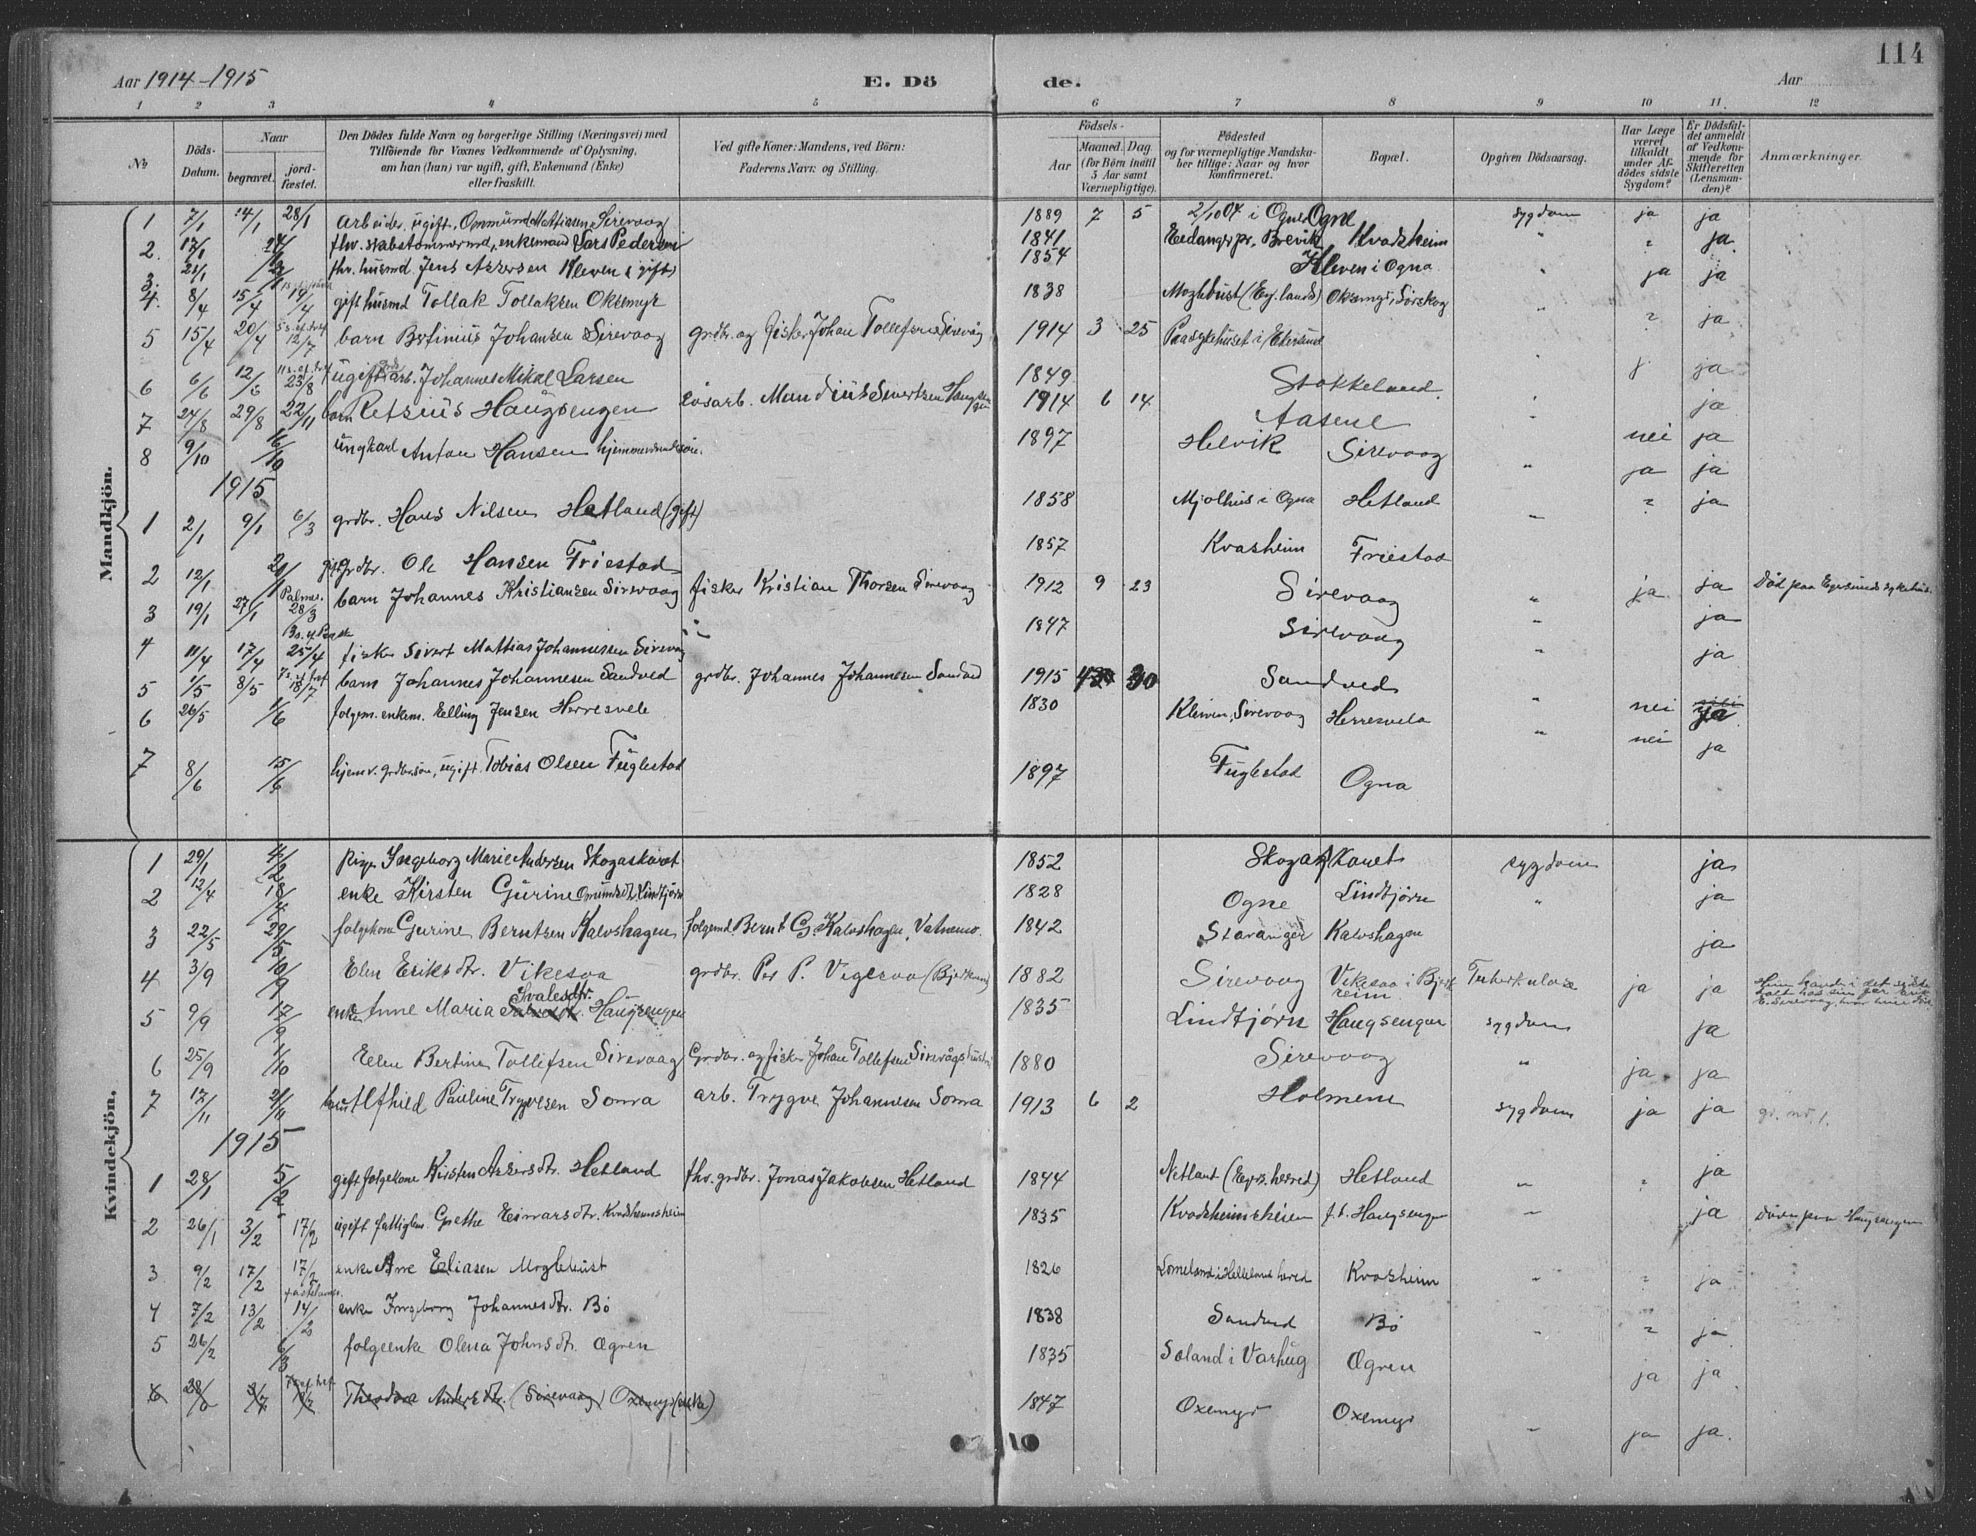 114
Aar 1914-1915 E. Dö de. Aar
1 2 3 4 5 6 7 8 9 10 11. 12
No
Döds-Datum.
Naar
begravet.
jord-fæstet.
Den Dödes fulde Navn og borgerlige Stilling (Næringsvei) med
Tilföiende for Voxnes Vedkommende af Oplysning,
om han (hun) var ugift, gift, Enkemand (Enke)
eller fraskilt.
Ved gifte Koner: Mandens, ved Börn:
Faderens Navn og Stilling.
Födsels-
Aar
Maaned. Dag
(for Börn indtil
5 Aar samt
Værnepligtige).
Födested
og for værnepligtige Mandska-
ber tillige: Naar og hvor
konfirmeret.
Bopæl.
Opgiven Dödsaarsag.
Har Læge
været
tilkaldt
under Af-
dödes sidste
Sygdom?
Er Dödsfal-
det anmeldt
af Vedkom-
mende for
Skifteretten
(Lensman-
den)?
Anmærkninger.
Mandkjön.
1 7/1 14/1 28/1 arbeider, ugift, Ommund Mathiasen Sirevaag 1889 7 5 2/10 04 i Ogne Ogne sygdom ja ja
2. 17/1 24/1 fhv. skabstømmermd, enkemand Lars Pedersen 1841 Brevik Kvadsheim " ja
3. 23/1 fhv. husmd. Jens Assersen Kleven (gift) 1854 Kleven i Ogna " ja ja
4. 8/4 15/4 19/4 gift husmd Tollak Tollaksen Oksemyr 1838 Moglebust (Eg. lands) Oksemyr, Sørskog
5 15/4 20/4 12/7 barn Bertinius Johansen Sirevaag grdbr. og fisker Johan Tollefsen Sirevåg 1914 3 25 Paa sykehuset i Ekersund ja
6 6/6 12/6 23/8 ugift arb. Johannes Mikal Larsen 1849 Stokkeland ja
7 24/8 29/8 22/11 barn Retsius Haugsengen løsarb. Mandius Sivertsen Haugsengen 1914 6 14 Aasene ja
8 9/10 16/10 ungkarl Anton Hansen 1897 Helvik Sirevaag " nei ja
1915
1 2/1 9/1 6/3 grdbr. Hans Nilsen Hetland (gift) 1858 Mjølhus i Ogna Hetland " ja
2 12/1 20/1 gift grdbr. Ole Hansen Friestad 1857 Kvasheim Friestad
3 19/1 27/1 Palmes. 28/3 barn Johannes Kristiansen Sirevaag fisker Kristian Thorsen Sirevaag 1912 9 23 Sirevaag " ja ja Død paa Egersunds sykehus.
4 11/4 17/4 25/4 fisker Sivert Mathias Johannessen Sirevåg 1847 Sirevaag " ja
5 1/5 8/5 18/7 barn Johannes Johannesen Sandved grdbr. Johannes Johannesen Sandved 1915 30 Sandved " ja
6 26/5 1/6 folgem. enkem. Elling Jensen Herresvele 1830 Kleiven, Sirevaag Herresvela " nei ja
7 8/6 15/6 hjemv. grdbrsøn, ugift Tobias Olsen Fuglestad 1897 Fuglestad Ogna " nei ja
Kvindekjön.
1 29/1 4/2 pige Ingeborg Marie Andersen Skogaskaret 1852 Skogaskaret sygdom ja
2 12/4 18/4 enke Kirsten Gurine Omundsdtr Lindtjørn 1828 Ogne Lindtjørn " ja
3 22/5 29/5 folgekone Gurine Berntsen Kalvshagen folgemd. Bernt G. Kalvshagen, Vatnemo. 1842 Stavanger Kalvshagen ja
4 3/9 10/9 Elen Eriksdtr. Vikesaa grdbr. Per P. Vigesaa (Bjerkreim) 1882 Sirevaag Vikesaa i Bjerkreim Tuberkulose ja ja
5 9/9 17/9 enke Anne Maria Svalesdtr. Haugsengen 1835 Lindtjørn Haugsengen sygdom ja
6 25/9 1/10 Elen Bertine Tollefsen Sirevaag Grdbr. og fisker Johan Tollefsen Sirevågs hustru 1880 Sirevaag " ja ja
7 17/11 21/11 barn Alfhild Pauline Trygvesen Somra arb. Trygve Johannesen Somra 1913 6 2 Holmene sygdom ja ja gr. nr. 1.
1915
1 28/1 5/2 gift folgekone Kirsten Assersdtr. Hetland fhv. grdbr. Jonas Jakobsen Hetland 1844 Netland (Egrs. herred) Hetland " ja
2 26/1 3/2 17/2 ugift fattiglem. Grethe Einarsdtr. Kvadsheimsheim 1835 Kvadsheimsheien f.t. Haugsengen ja Døde paa Haugsengen
3 9/2 17/2 17/2 enke Ane Eliasen Moglebust 1826 Lomeland i Helleland herred Kvasheim " ja
fastelavns.
4 7/2 13/2 14/2 enke Ingeborg Johannesdtr. Bö 1838 Sandved Bö ja
5 26/2 6/3 folgeenke Olena Johnsdtr. Ogren 1835 Søland i Varhug Ogren ja ja
6 Theodora Andersdtr. (Sirevaag) Oxemyr (enke) 1847 Oxemyr Oxemyr " ja ja.